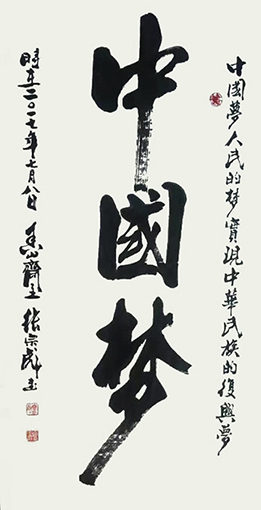 中國夢人民的梦實現中華民族的復興夢
中國梦
時在二〇一七年七月八日 齋主 張宗彪书